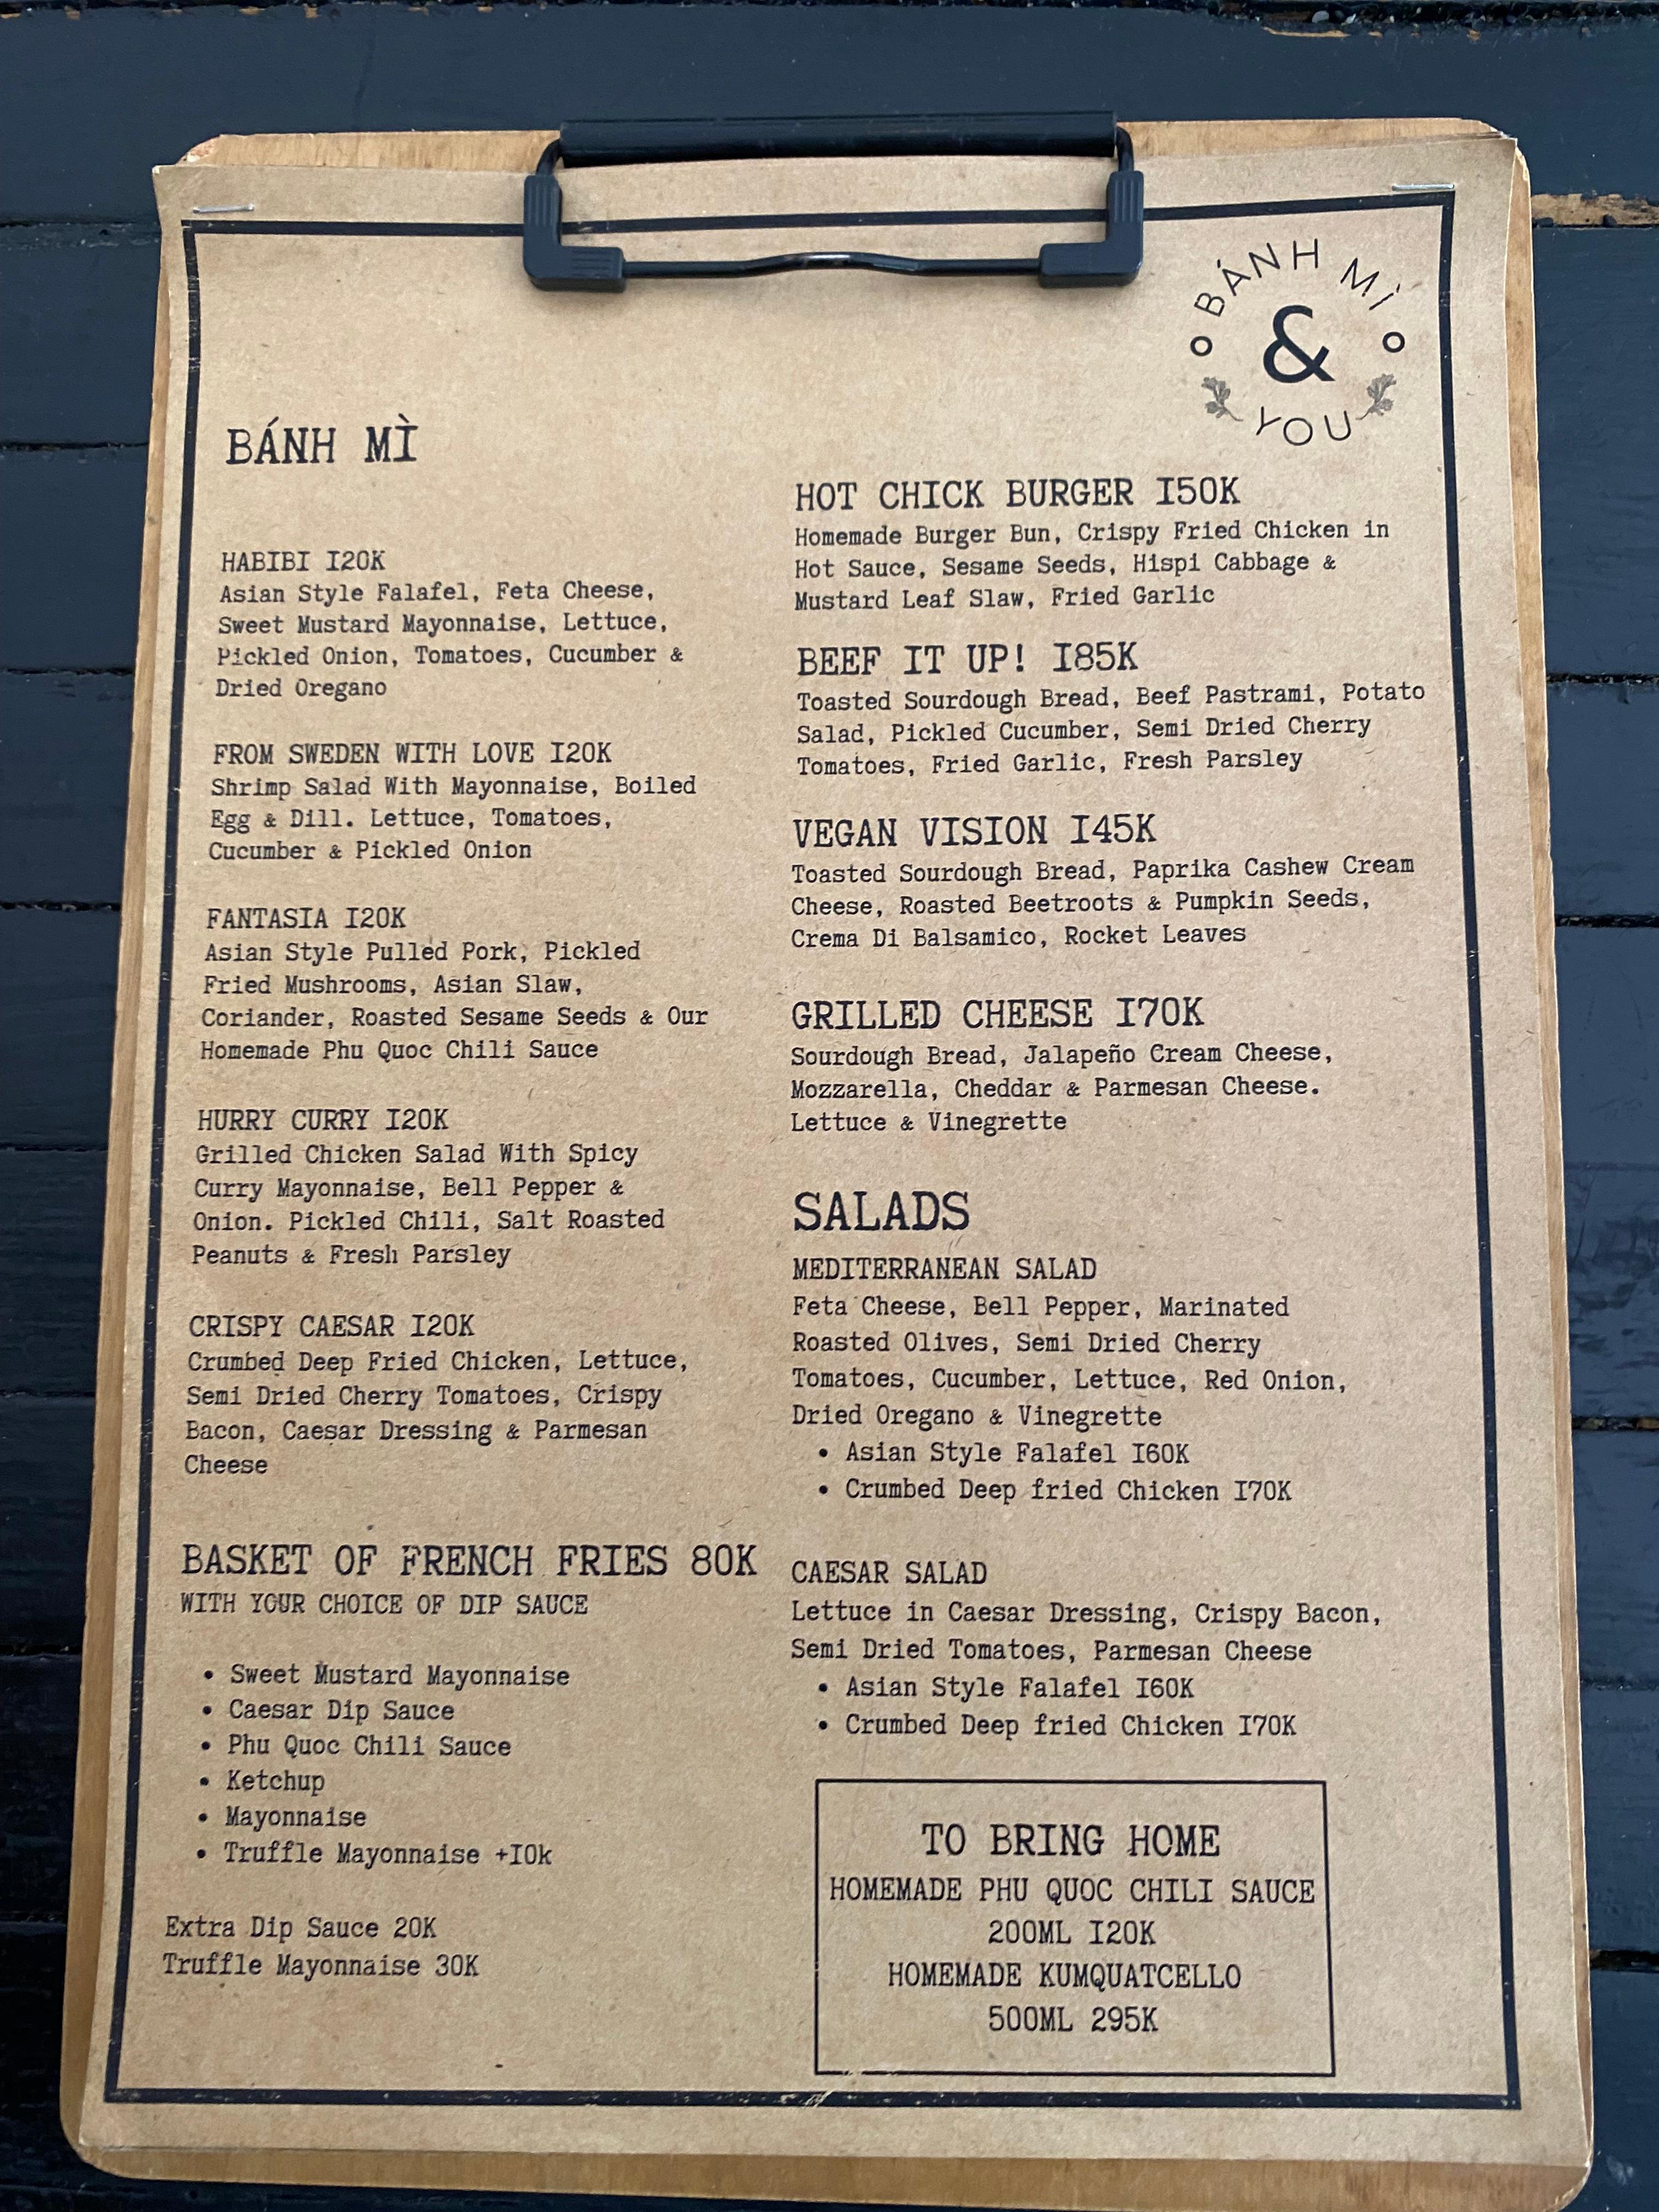 BÁNH MÌ
&
YOU
BÁNH MÌ
HABIBI 120K
Asian Style Falafel, Feta Cheese,
Sweet Mustard Mayonnaise, Lettuce,
Pickled Onion, Tomatoes, Cucumber &
Dried Oregano
FROM SWEDEN WITH LOVE 120K
Shrimp Salad With Mayonnaise, Boiled
Egg & Dill. Lettuce, Tomatoes,
Cucumber & Pickled Onion
FANTASIA 120K
Asian Style Pulled Pork, Pickled
Fried Mushrooms, Asian Slaw,
Coriander, Roasted Sesame Seeds & Our
Homemade Phu Quoc Chili Sauce
HURRY CURRY 120K
Grilled Chicken Salad With Spicy
Curry Mayonnaise, Bell Pepper &
Onion. Pickled Chili, Salt Roasted
Peanuts & Fresh Parsley
CRISPY CAESAR 120K
Crumbed Deep Fried Chicken, Lettuce,
Semi Dried Cherry Tomatoes, Crispy
Bacon, Caesar Dressing & Parmesan
Cheese
BASKET OF FRENCH FRIES 80K
WITH YOUR CHOICE OF DIP SAUCE
• Sweet Mustard Mayonnaise
• Caesar Dip Sauce
• Phu Quoc Chili Sauce
• Ketchup
• Mayonnaise
• Truffle Mayonnaise +10k
Extra Dip Sauce 20K
Truffle Mayonnaise 30K
HOT CHICK BURGER 150K
Homemade Burger Bun, Crispy Fried Chicken in
Hot Sauce, Sesame Seeds, Hispi Cabbage &
Mustard Leaf Slaw, Fried Garlic
BEEF IT UP! 185K
Toasted Sourdough Bread, Beef Pastrami, Potato
Salad, Pickled Cucumber, Semi Dried Cherry
Tomatoes, Fried Garlic, Fresh Parsley
VEGAN VISION 145K
Toasted Sourdough Bread, Paprika Cashew Cream
Cheese, Roasted Beetroots & Pumpkin Seeds,
Crema Di Balsamico, Rocket Leaves
GRILLED CHEESE 170K
Sourdough Bread, Jalapeño Cream Cheese,
Mozzarella, Cheddar & Parmesan Cheese.
Lettuce & Vinegrette
SALADS
MEDITERRANEAN SALAD
Feta Cheese, Bell Pepper, Marinated
Roasted Olives, Semi Dried Cherry
Tomatoes, Cucumber, Lettuce, Red Onion,
Dried Oregano & Vinegrette
• Asian Style Falafel 160K
• Crumbed Deep fried Chicken 170K
CAESAR SALAD
Lettuce in Caesar Dressing, Crispy Bacon,
Semi Dried Tomatoes, Parmesan Cheese
• Asian Style Falafel 160K
• Crumbed Deep fried Chicken 170K
TO BRING HOME
HOMEMADE PHU QUOC CHILI SAUCE
200ML 120K
HOMEMADE KUMQUATCELLO
500ML 295K